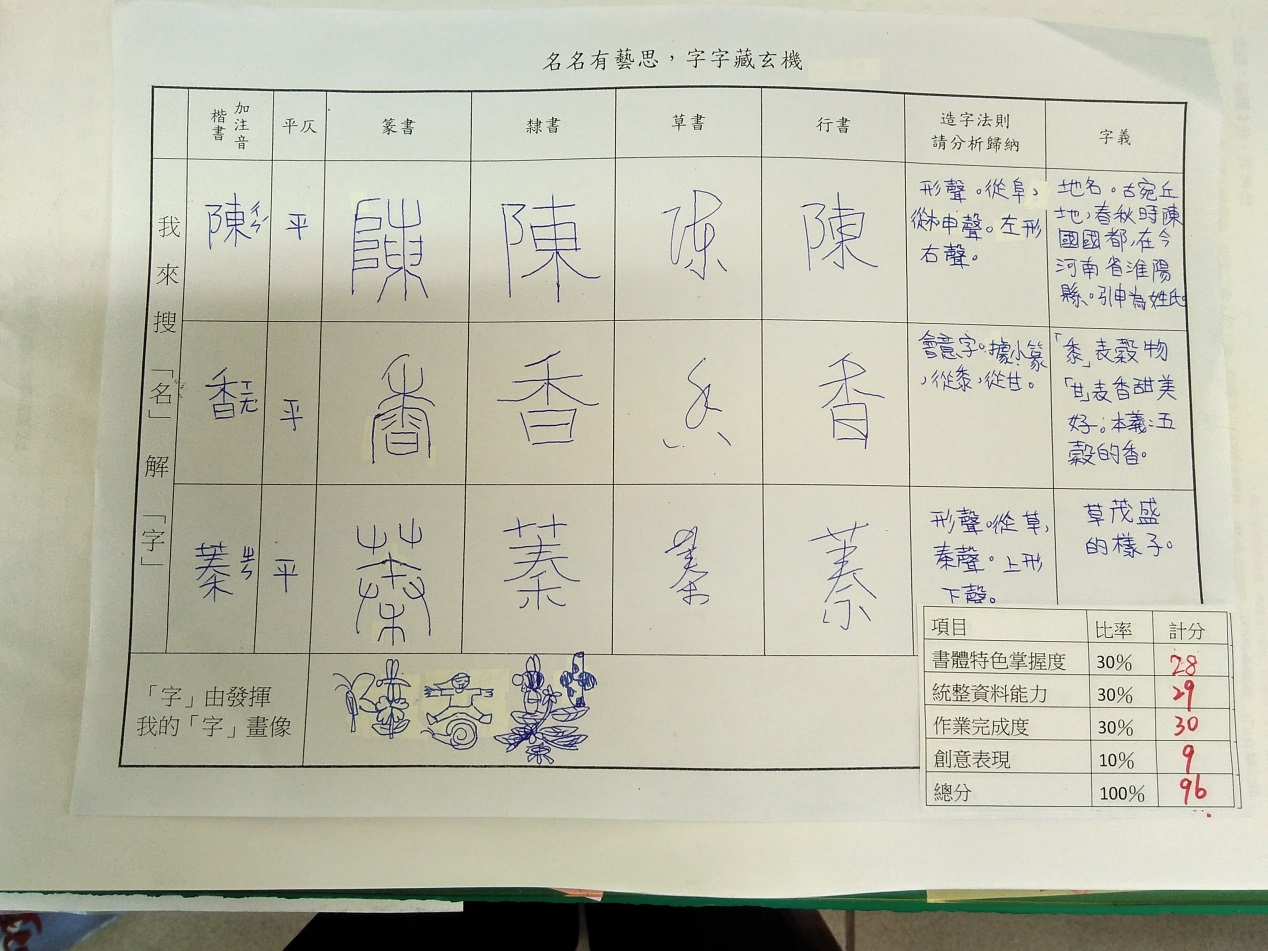 名名有藝思，字字藏玄機
楷書 加注音 平仄 篆書 隸書 草書 行書 造字法則 請分析歸納 字義
我來搜「名」解「字」
陳 ㄔㄣˊ 平 陳 陳 陳 陳
形聲。從阜，
從木申聲。左形
右聲。
地名。古宛丘
地，春秋時陳
國國都，在今
河南省淮陽
縣。引申為姓氏
香 ㄒㄧㄤ 平 香 香 香 香
會意字。據小篆
，從黍，從甘。
「黍」表穀物
「甘」表香甜美
好。本義：五
穀的香。
蓁 ㄓㄣ 平 蓁 蓁 蓁 蓁
形聲。從草，
秦聲。上形
下聲。
草茂盛
的樣子。
「字」由發揮
我的「字」畫像
項目 比率 計分
書體特色掌握度 30% 28
統整資料能力 30% 29
作業完成度 30% 30
創意表現 10% 9
總分 100% 96